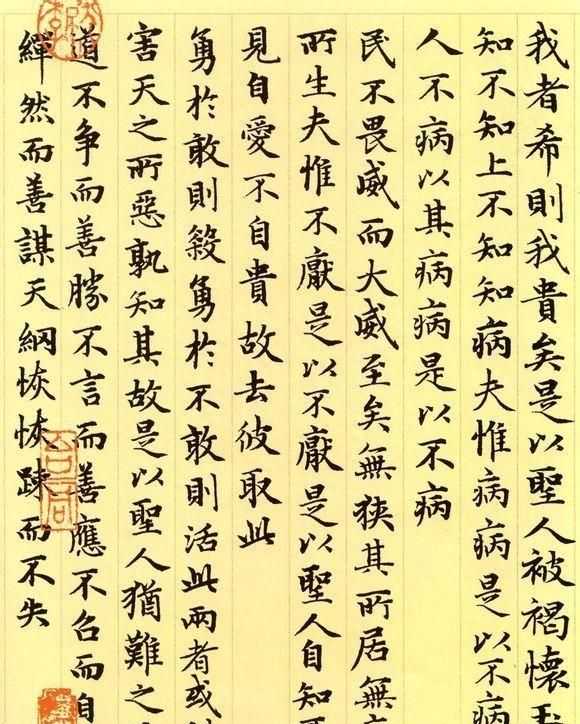 我者希則我貴矣是以聖人被褐懷玉
知不知上不知知病夫惟病病是以不病
人不病以其病病是以不病
民不畏威而大威至矣無狹其所居無
所生夫惟不厭是以不厭是以聖人自知
見自愛不自貴故去彼取此
勇於敢則殺勇於不敢則活此兩者或
害天之所惡孰知其故是以聖人猶難之
道不争而善勝不言而善應不召而自
繟然而善謀天網恢恢踈而不失